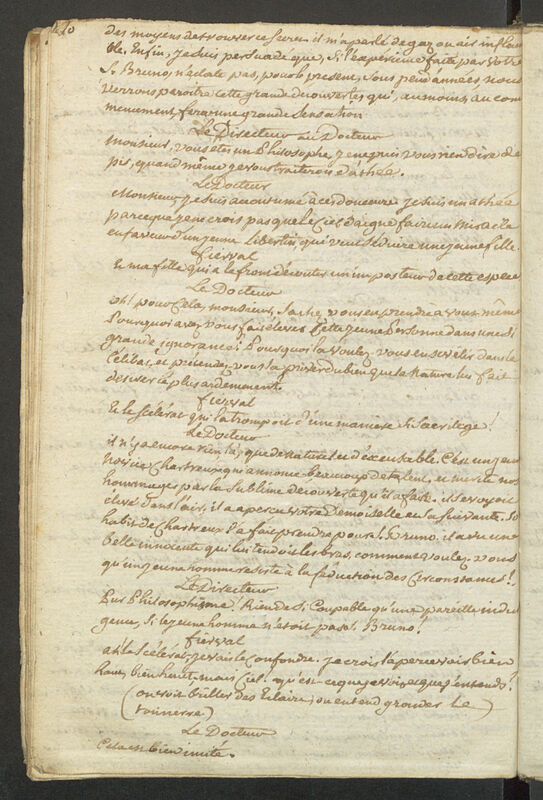 des moyens de trouver ce secret. il m'a parlé de gaz ou air inflam
ble. Enfin, je suis persuadé que, si l'expérience faite par votre
S. Bruno, n'éclate pas, pour le présent, sous peu d'années nous
verrons paroitre cette grande decouverte qui, au moins, au com
mencement, fera une grande sensation
Le Directeur au Docteur
Monsieur, vous etes un Philosophe, je ne puis vous rien dire de
pis, quand même je vous traiterois d'athée.
Le Docteur
Monsieur, je suis accoutumé à ces douceurs. je suis un athée
parceque je ne crois pas que le Ciel daigne faire un miracle
en faveur d'un jeune libertin, qui veut séduire une jeune fille.
fierval
Et ma fille qui a le front d'écouter un imposteur de cette espece
Le Docteur
oh! pour cela, monsieur, sachez vous en prendre à vous même
Pourquoi avez vous fait élever cette jeune Personne dans une si
grande ignorance? Pourquoi la voulez vous ensevelir dans le
Célibat, et prétendez vous la priver du bien que la Nature lui fait
desirer le plus ardemment.
fierval
Et le scélérat qui la trompoit d'une maniere si sacrilege!
Le Docteur
il n'y a encore rien là, que de naturel et d'excusable. C'est un jeune
novice Chartreux qui annonce beaucoup de talent, et mérite nos
hommages par la sublime decouverte qu'il a faite. il s'envoyoit
élevé dans l'air, il a apercu votre Demoiselle et sa suivante. So
habit de Chartreux l'a fait prendre pour St Bruno. il a vu une
belle innocente qui lui tendoit les bras, comment voulez-vous
qu'un jeune homme resiste à la séduction des circonstances!
Le Directeur
Pur Philosophisme! Rien de si coupable qu'une pareille indul
gence, si le jeune homme n'étoit pas St Bruno!
fierval
ah! le scélérat, je vais le confondre. je crois l'apercevoir bien
haut, bien haut, mais Ciel! qu'est-ce que je vois, et que j'entends?
(on voit briller des Eclairs, on entend gronder le
tonnerre.)
Le Docteur
Cela est bien imité.